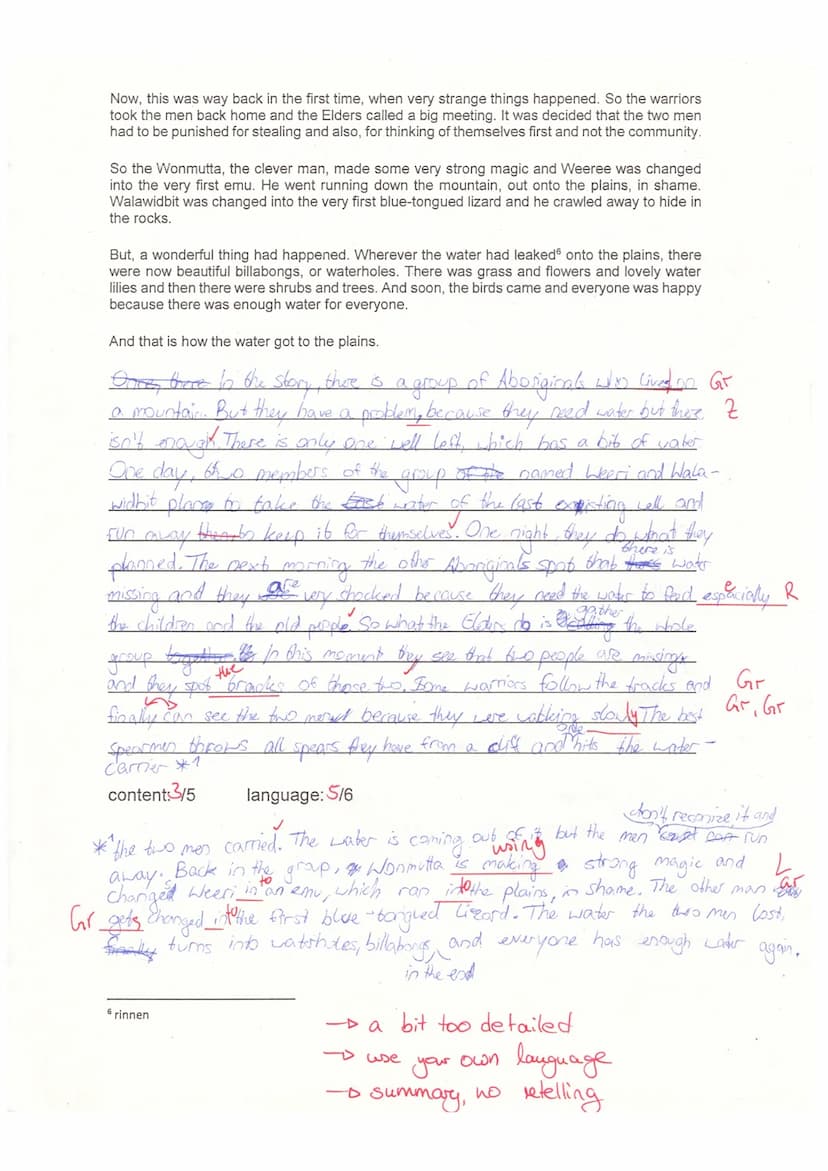 Now, this was way back in the first time, when very strange things happened. So the warriors
took the men back home and the Elders called a big meeting. It was decided that the two men
had to be punished for stealing and also, for thinking of themselves first and not the community.
So the Wonmutta, the clever man, made some very strong magic and Weeree was changed
into the very first emu. He went running down the mountain, out onto the plains, in shame.
Walawidbit was changed into the very first blue-tongued lizard and he crawled away to hide in
the rocks.
But, a wonderful thing had happened. Wherever the water had leaked⁶ onto the plains, there
were now beautiful billabongs, or waterholes. There was grass and flowers and lovely water
lilies and then there were shrubs and trees. And soon, the birds came and everyone was happy
because there was enough water for everyone.
And that is how the water got to the plains.
In the story, there is a group of Aboriginals who lived on Gr
a mountain. But they have a problem, because they need water but there Z
isn't enough. There is only one well left, which has a bit of water
One day, two members of the group named Weeri and Wala-
widbit plan to take the water of the last existing well and
run away to keep it for themselves. One night, they do what they
planned. The next morning the other Aboriginals spot that there is water
missing and they are very shocked because they need the water to feed especially R
the children and the old people. So what the Elders do is gather the whole
group In this moment they see that two people are missing
and they spot the tracks of those two. Some warriors follow the tracks and Gr
finally can see the two men because they were walking slowly The best Gr, Gr
spearmen throws all spears they have from a cliff and one hits the water-
carrier *¹
content: 3/5 language: 5/6
*¹ the two men carried. The water is coming out of it but the men don't recognize it and run
away. Back in the group, Wonmutta is making using strong magic and L
changed Weeri into an emu, which ran into the plains, in shame. The other man Gr
Gr gets changed into the first blue-tongued lizard. The water the two men lost,
turns into waterholes, billabongs, and everyone has enough water again.
in the end
⁶ rinnen
→ a bit too detailed
→ use your own language
→ summary, no retelling